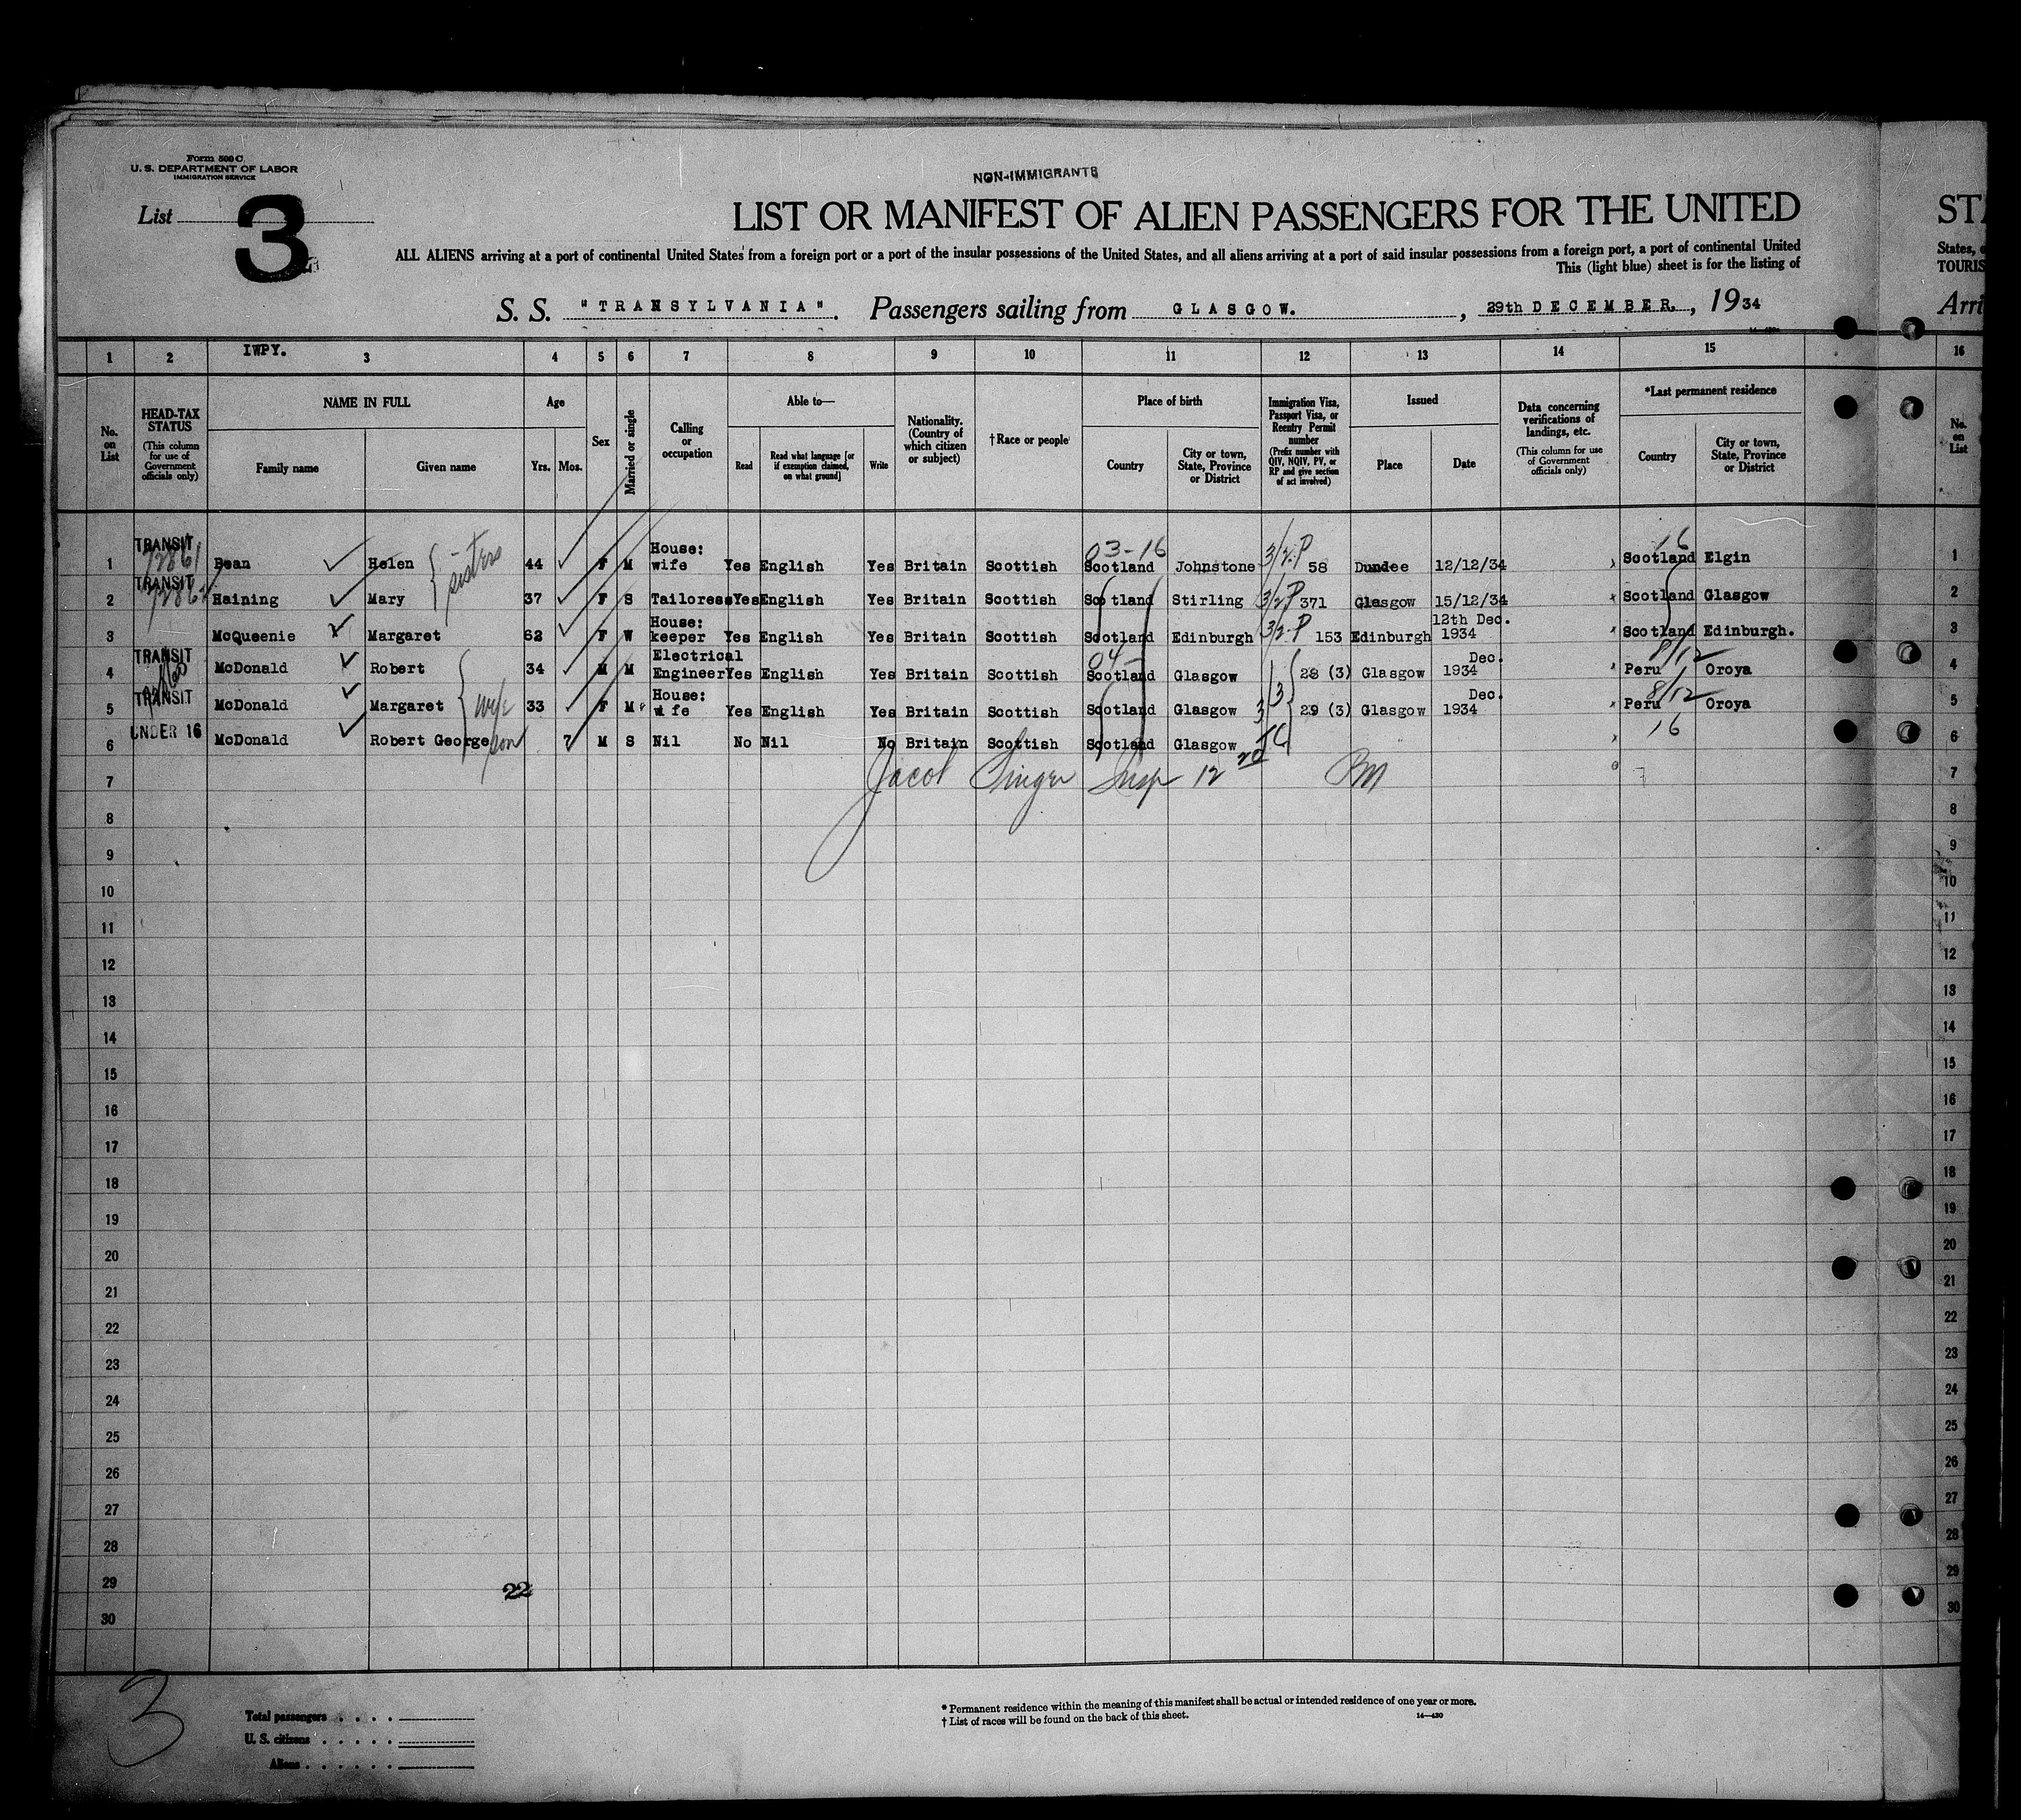 Form 500 C
U. S. DEPARTMENT OF LABOR
IMMIGRATION SERVICE
NON-IMMIGRANTS
List 3
LIST OR MANIFEST OF ALIEN PASSENGERS FOR THE UNITED
STA
ALL ALIENS arriving at a port of continental United States from a foreign port or a port of the insular possessions of the United States, and all aliens arriving at a port of said insular possessions from a foreign port, a port of continental United
States, o
This (light blue) sheet is for the listing of
TOURIS
S. S. "TRANSYLVANIA". Passengers sailing from GLASGOW., 29th DECEMBER., 1934
Arri
1 2 IWPY. 3 4 5 6 7 8 9 10 11 12 13 14 15 16
No. on List
HEAD-TAX STATUS (This column for use of Government officials only)
NAME IN FULL
Family name Given name
Age
Yrs. Mos.
Sex
Married or single
Calling or occupation
Able to—
Read
Read what language [or if exemption claimed, on what ground]
Write
Nationality. (Country of which citizen or subject)
†Race or people
Place of birth
Country
City or town, State, Province or District
Immigration Visa, Passport Visa, or Reentry Permit number (Prefix number with QIV, NQIV, PV, or RP and give section of act involved)
Issued
Place Date
Data concerning verifications of landings, etc. (This column for use of Government officials only)
*Last permanent residence
Country
City or town, State, Province or District
No. on List
1 TRANSIT Bean Helen sisters 44 F M House: wife Yes English Yes Britain Scottish 03-16 Scotland Johnstone 3/2.P 58 Dundee 12/12/34 16 Scotland Elgin 1
2 TRANSIT Haining Mary 37 F S Tailoress Yes English Yes Britain Scottish Scotland Stirling 3/2P 371 Glasgow 15/12/34 Scotland Glasgow 2
3 McQueenie Margaret 62 F W House: keeper Yes English Yes Britain Scottish Scotland Edinburgh 3/2.P 153 Edinburgh 12th Dec. 1934 Scotland Edinburgh. 3
4 TRANSIT McDonald Robert 34 M M Electrical Engineer Yes English Yes Britain Scottish 04- Scotland Glasgow 28 (3) Glasgow Dec. 1934 8/12 Peru Oroya 4
5 TRANSIT McDonald Margaret wife 33 F M House: wife Yes English Yes Britain Scottish Scotland Glasgow 29 (3) Glasgow Dec. 1934 8/12 Peru Oroya 5
6 UNDER 16 McDonald Robert George son 7 M S Nil No Nil No Britain Scottish Scotland Glasgow 16 6
7 Jacob Singer Insp 12 7
8 8
9 9
10 10
11 11
12 12
13 13
14 14
15 15
16 16
17 17
18 18
19 19
20 20
21 21
22 22
23 23
24 24
25 25
26 26
27 27
28 28
29 22 29
30 30
3
Total passengers
U. S. citizens
Aliens
* Permanent residence within the meaning of this manifest shall be actual or intended residence of one year or more.
† List of races will be found on the back of this sheet.
14—430